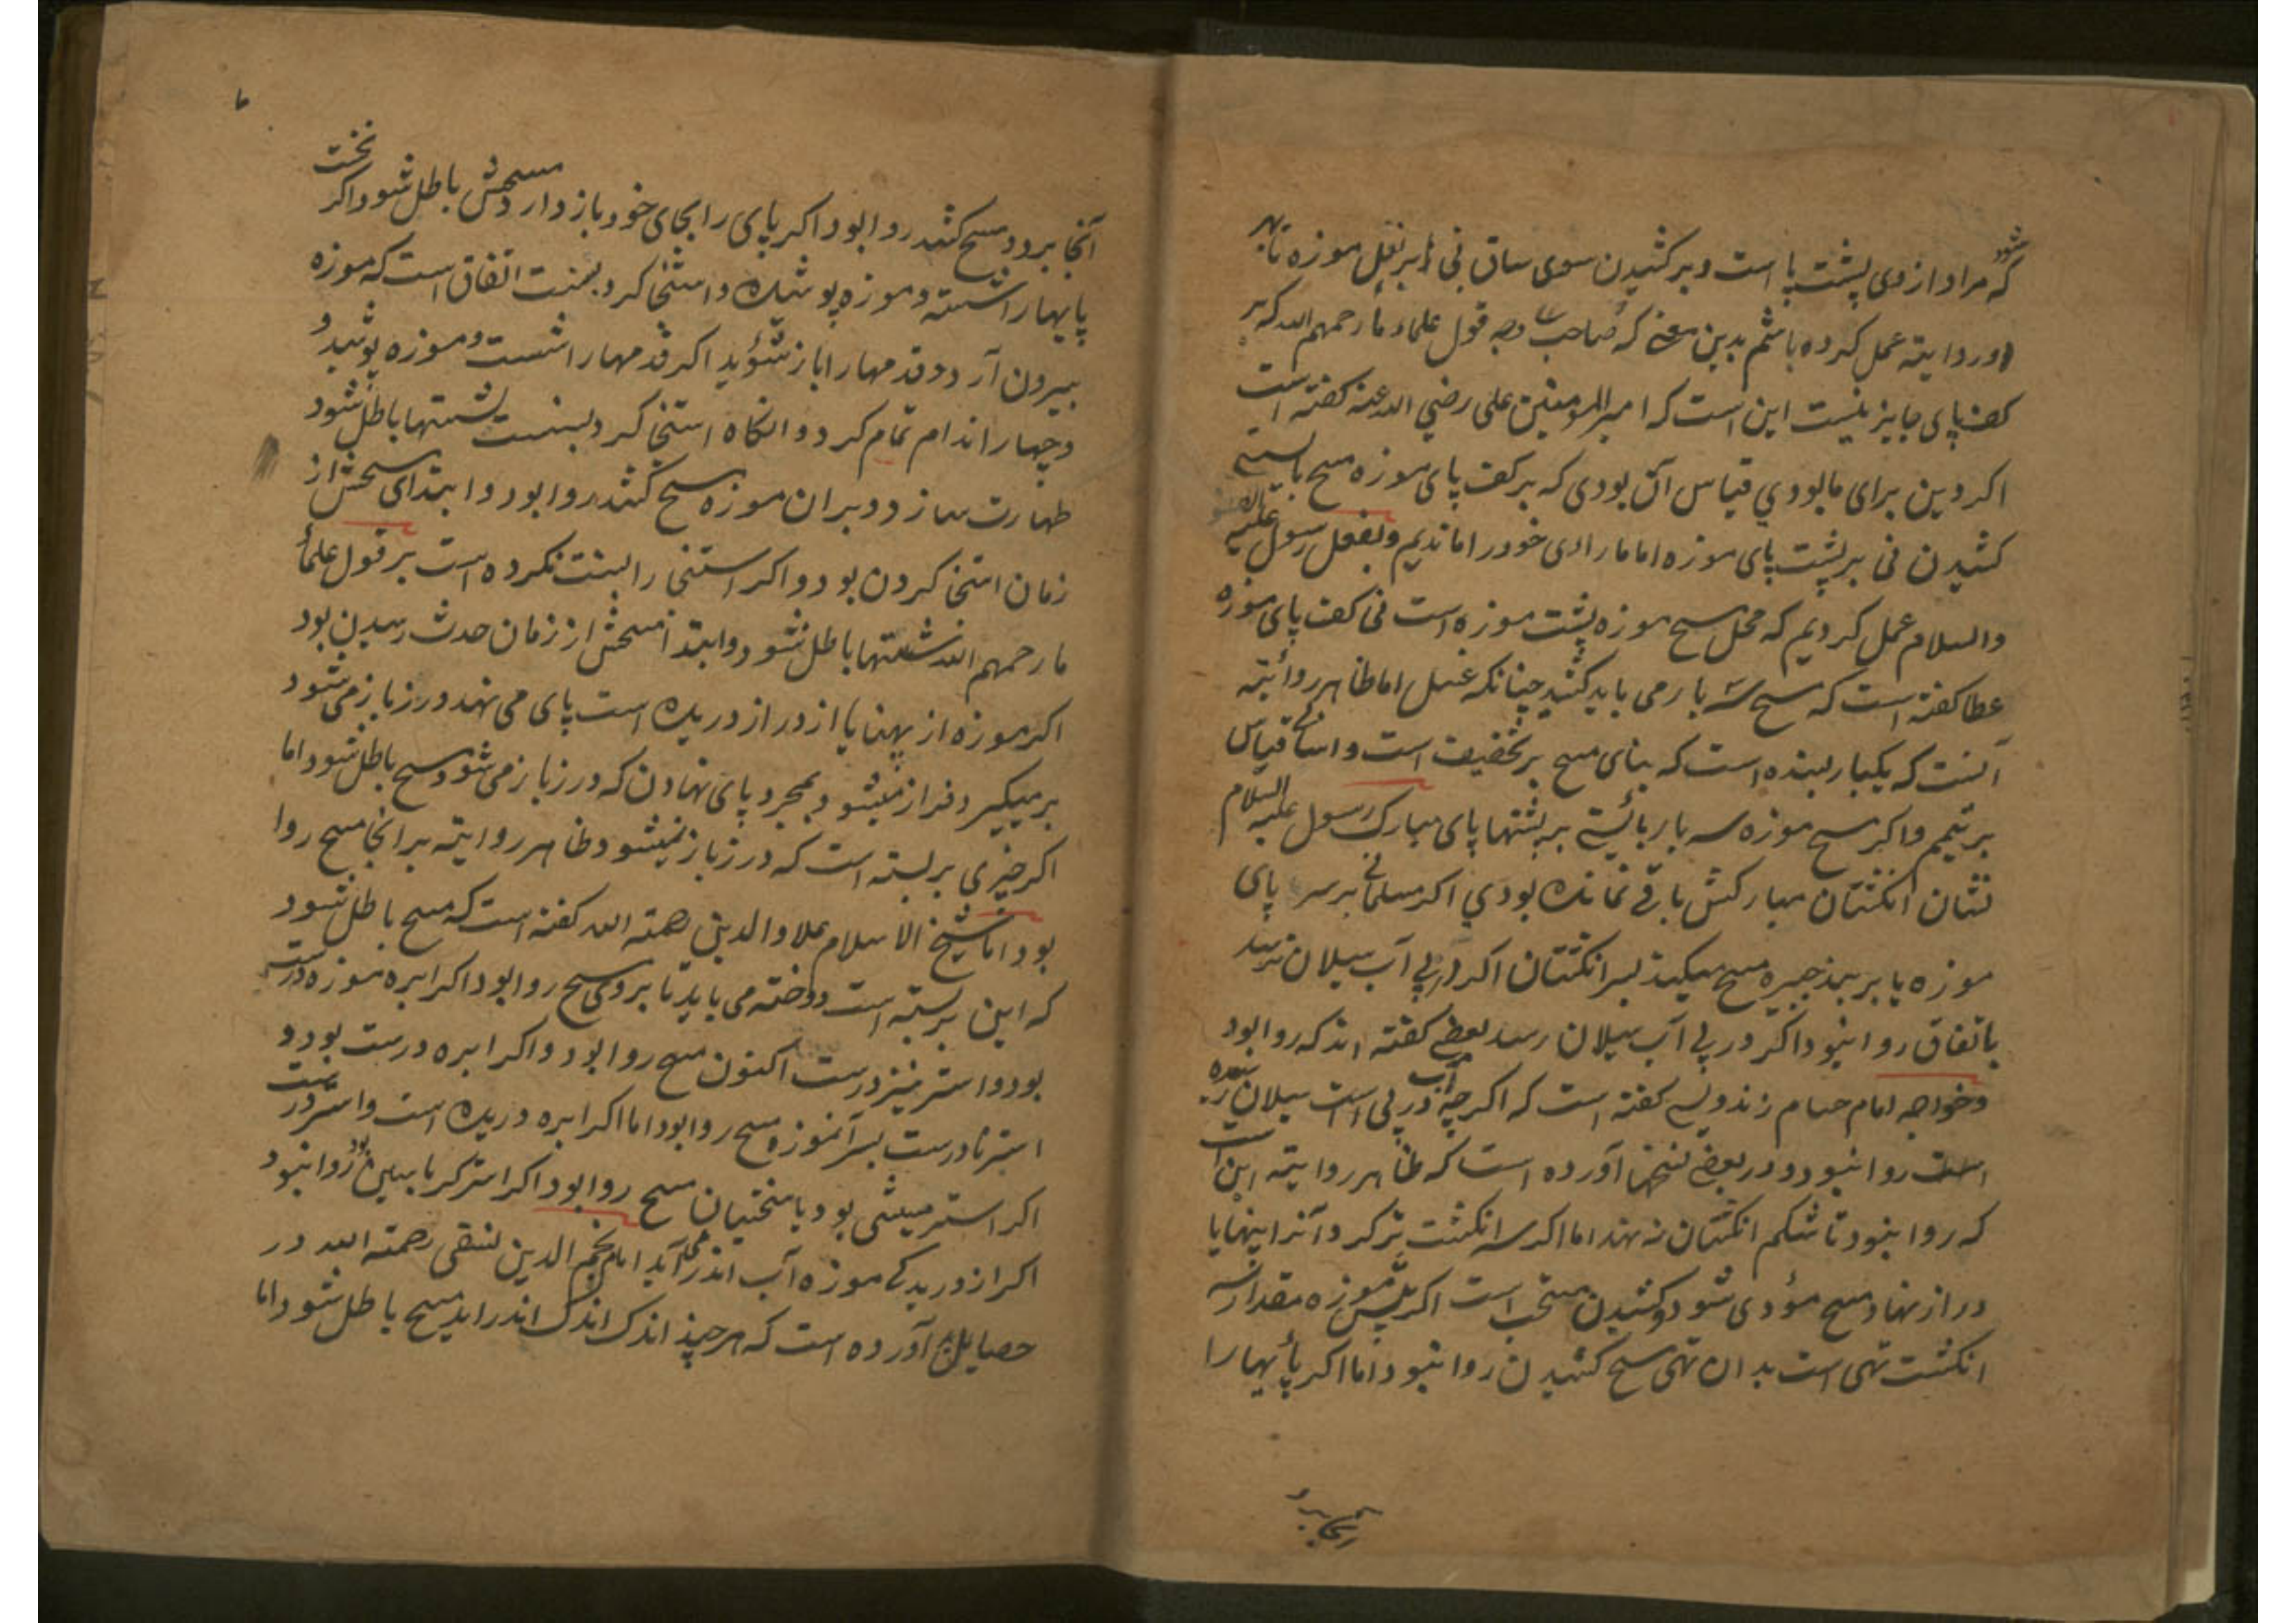 که مراد از وی پشت پا است و بر کشیدن سوی ساق نی بر نعل موزه تا بهر
شود
و روایته عمل کرده باشم بدین معنی که صاحب وجه قول علماء ما رحمهم الله که بر
کف پای جایز نیست این است که امیر المومنین علی رضی الله عنه کفته است
اکر دین برای ما بودی قیاس آن بودی که بر کف پای موزه مسح بایستی
کشیدن نی بر پشت پای موزه اما ما رای خود را ماندیم و بفعل رسول علیه
والسلام عمل کردیم که محل مسح موزه پشت موزه است نی کف پای موزه
عطا کفته است که مسح سه بار می باید کشید چنانکه غسل اما ظاهر روایته
آنست که یکبار بسنده است که بنای مسح بر تخفیف است و اسانی قیاس
بر تیمم و اکر مسح موزه سه بار بائستی بر پشتها پای مبارک رسول علیه السلام
نشان انکشتان مبارکش باقی نمانده بودی اکر مسلمانی بر سر پای
موزه یا بر بند جبیره مسح میکند بسر انکشتان اکر در پی آب سیلان نرسد
باتفاق روا نبود و اکر در پی آب سیلان رسد بعضی کفته اند که روا بود
و خواجه امام حسام زندویسی کفته است که اکرچه آب در پی است سیلان
است روا نبود و در بعضی نسخها آورده است که ظاهر روایته این است
که روا نبود تا شکم انکشتان نه نهد اما اکر سه انکشت تر کرد و آنرا پنهایا
دراز نهاد مسح مؤدی شود و کشیدن مستحب است اکر پیش موزه مقدار سه
انکشت تهی است بدان تهی مسح کشیدن روا نبود و اما اکر پائیها را
آنجا برد
آنجا برد و مسح کشد روا بود اکر پای را بجای خود باز دارد مسحش باطل شود و اکر نخست
پایها را شسته و موزه پوشیده و استنجا کرد بسنت اتفاق است که موزه
بیرون آرد و قدمها را باز شؤید اکر قدمها را شست و موزه پوشید و
و چهار اندام تمام کرد و انکاه استنجا کرد بسنت شستنها باطل شود
طهارت سازد و بران موزه مسح کشد روا بود و ابتدای مسحش از
زمان استنجا کردن بود و اکر استنجا را بسنت نکرده است بر قول علمأ
ما رحمهم الله شستنها باطل نشود و ابتدأ مسحش از زمان حدث رسیدن بود
اکر موزه از پهنا یا از دراز دریده است پای می نهد درز باز می شود
بر میکیرد فراز میشود بمجرد پای نهادن که درز باز می شود مسح باطل شود اما
اکر چیزی بر بسته است که درز باز نمیشود ظاهر روایته بر انجا مسح روا
بود اما شیخ الاسلام علاو الدین رحمته الله کفته است که مسح باطل شود
که این بر بسته است دوخته می باید تا بر وی مسح روا بود اکر ابره موزه درست
بود و استر نیز درست اکنون مسح روا بود و اکر ابره درست بود و
استر نادرست بسر آنموزه مسح روا بود اما اکر ابره دریده است و استر درست
اکر استر میشی بود یا سختیان مسح روا بود اکر استر کرباسین بود روا نبود
اکر از دریدکی موزه آب اندر آید امام نجم الدین نسفی رحمته الله در
حصایل آورده است که هر چند اندک اندک اندر اید مسح باطل شود اما